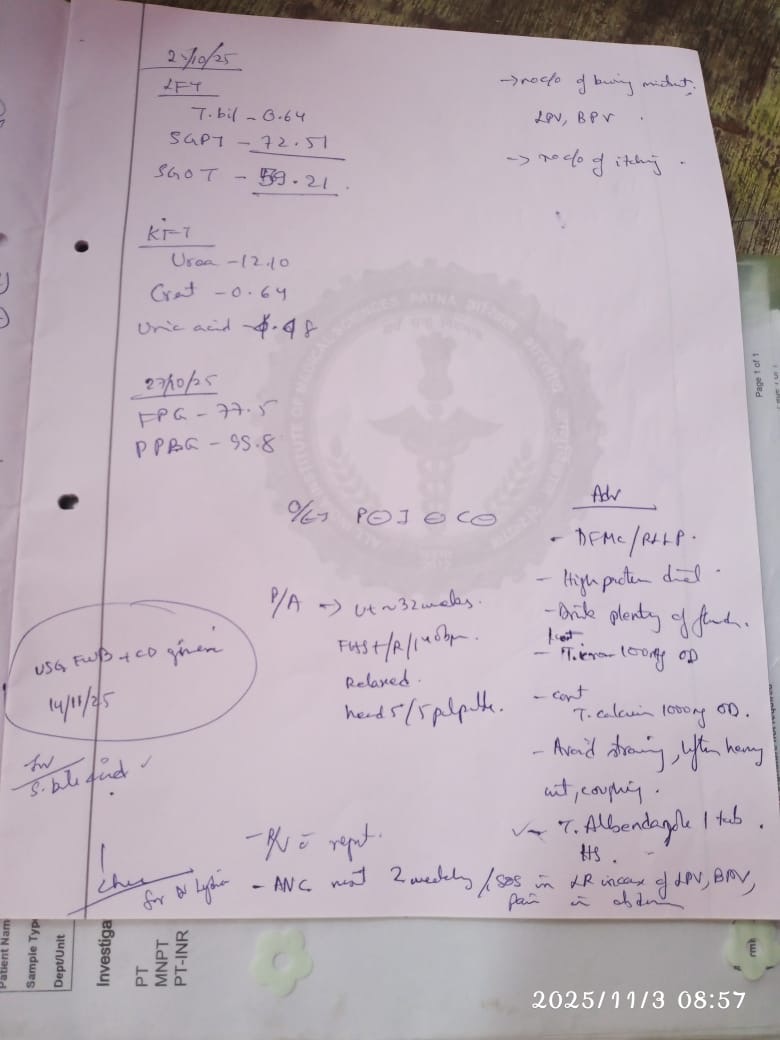 27/10/25
LFT
T.bil - 0.64
SGPT - 72.51
SGOT - 59.21
→ no c/o of
LPV, BPV
→ no c/o of itching
KFT
Urea - 12.10
Creat - 0.64
Uric acid - 4.48
27/10/25
FPG - 77.5
PPBG - 95.8
O/E → P⊖ I ⊖ C⊖
P/A → Ut ~ 32 weeks.
FHS +/R/140bpm.
Relaxed.
head 5/5 palpable.
USG FWB + CD given
14/11/25
for
S. bile acid ✓
Adv
- DFMC/RLLP.
- High protein diet
- Drink plenty of fluid.
- cont T. iron 100mg OD
- cont
T. calcium 1000mg OD.
- Avoid straining, lifting heavy
wt, coughing.
✓ - T. Albendazole 1 tab
HS.
- R/V c̄ report.
- ANC next 2 weekly / SOS in LR in case of LPV, BPV,
pain in abdomen
ALL INDIA INSTITUTE OF MEDICAL SCIENCES PATNA
Page 1 of 1
Patient Nam
Sample Typ
Dept/Unit
Investiga
PT
MNPT
PT-INR
2025/11/3 08:57